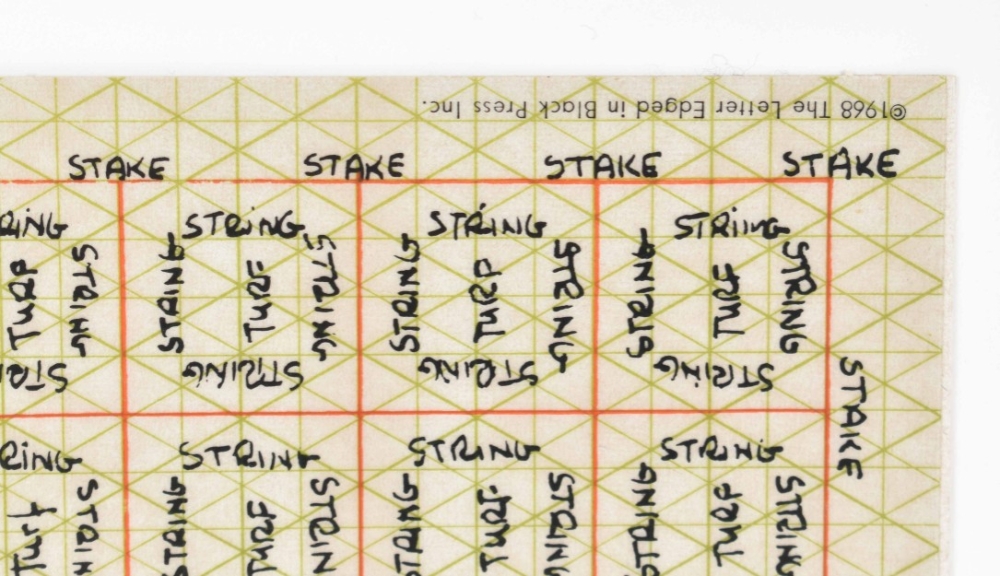 ©1968 The Letter Edged in Black Press Inc.
STAKE STAKE STAKE STAKE
STRING STRING STRIING
STRING STRING TURF STRING STRING TURF STRING STRING TURF STRING
TURF
STRING STRING STRING
STAKE
STRING STRING STRING
STRING TURF STRING STRING TURF STRING STRING TURF STRING
Turf